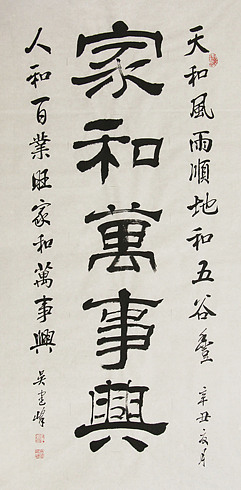 天和風雨順地和五谷豊
辛丑夏月
家和萬事興
人和百業旺家和萬事興